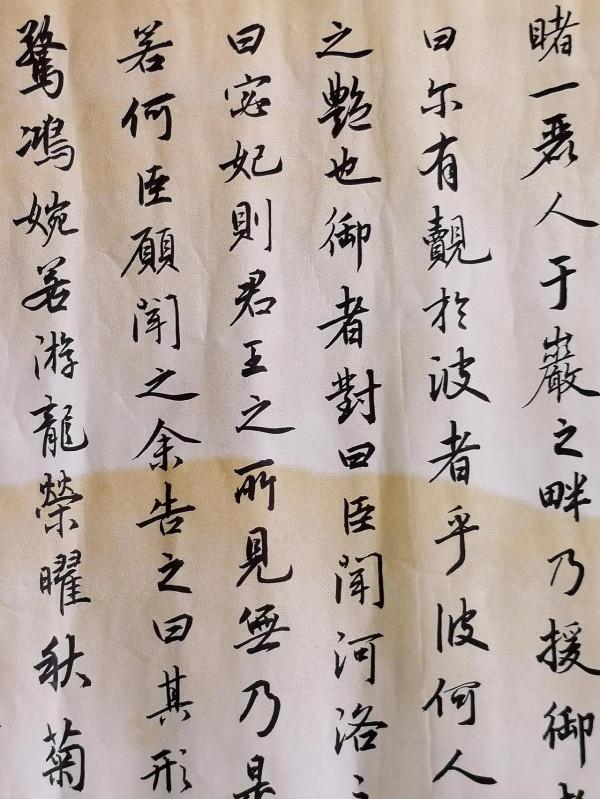 睹一麗人于巖之畔乃援御者
曰尔有覿於波者乎彼何人
之艷也御者對曰臣聞河洛之
曰宓妃則君王之所見無乃是
若何臣願聞之余告之曰其形
驚鴻婉若游龍榮曜秋菊